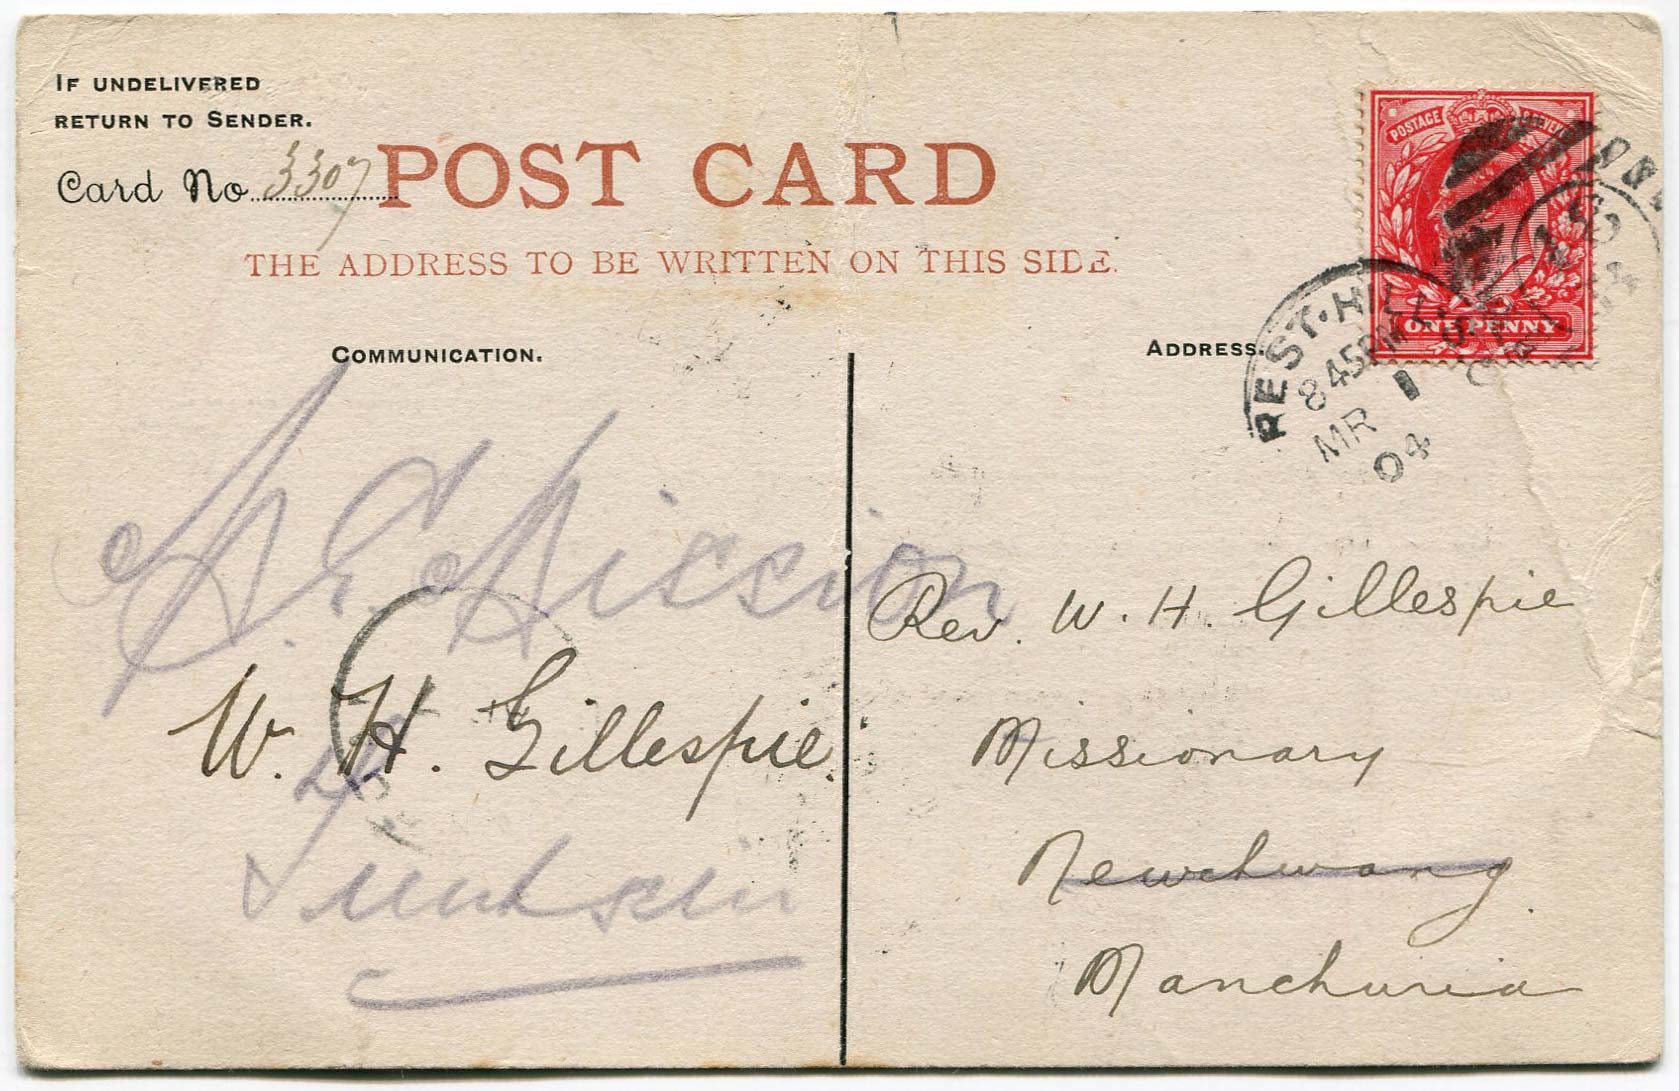 IF UNDELIVERED
RETURN TO SENDER.
Card No. 3307
POST CARD
THE ADDRESS TO BE WRITTEN ON THIS SIDE.
COMMUNICATION.
Mission
W. H. Gillespie.
ADDRESS.
POSTAGE
ONE PENNY
REST·HILL·S.O
845PM
MR 1
04
Rev. W. H. Gillespie
Missionary
Newchwang.
Manchuria